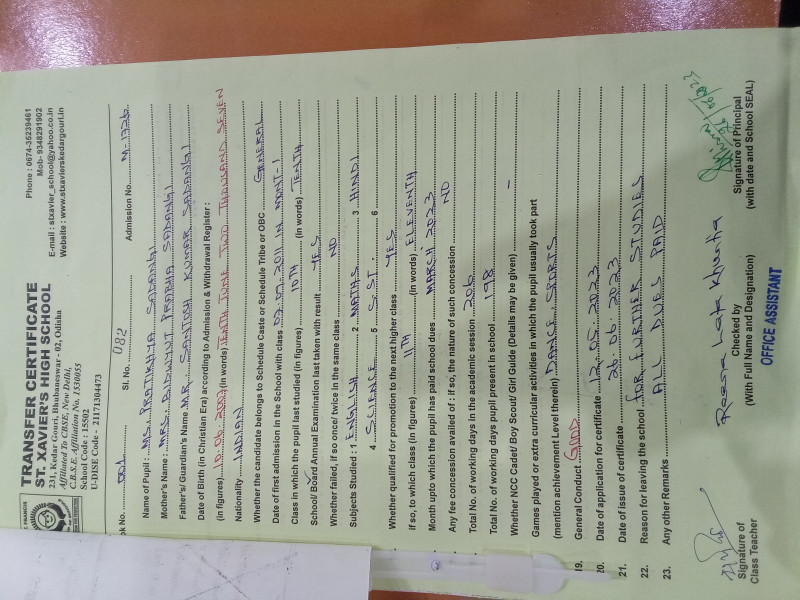 TRANSFER CERTIFICATE
ST. XAVIER'S HIGH SCHOOL
231, Kedar Gouri, Bhubaneswar - 02, Odisha
Affiliated To CBSE, New Delhi,
C.B.S.E. Affiliation No. 1530055
School Code : 15502
U-DISE Code - 21171304473
Phone : 0674-35239461
Mob- 9348291902
E-mail : stxavier_school@yahoo.co.in
Website : www.stxavierskedargouri.in
ok No. 001 Sl. No. 082 Admission No. M-1726
Name of Pupil : MS. PRATIKHYA SADANGI
Mother's Name : MRS. BIDYUT PRABHA SADANGI
Father's/ Guardian's Name MR. SANTOSH KUMAR SADANGI
Date of Birth (in Christian Era) according to Admission & Withdrawal Register :
(in figures) 10.06.2007 (in words) TENTH JUNE TWO THOUSAND SEVEN
Nationality INDIAN
Whether the candidate belongs to Schedule Caste or Schedule Tribe or OBC GENERAL
Date of first admission in the School with class 02.07.2011 IN MONT-1
Class in which the pupil last studied (in figures) 10TH (in words) TENTH
School/ Board Annual Examination last taken with result YES
Whether failed, if so once/ twice in the same class NO
Subjects Studied : 1 ENGLISH 2 MATHS 3 HINDI
4 SCIENCE 5 S.ST. 6
Whether qualified for promotion to the next higher class YES
if so, to which class (in figures) 11TH (in words) ELEVENTH
Month upto which the pupil has paid school dues MARCH 2023
Any fee concession availed of : if so, the nature of such concession NO
Total No. of working days in the academic session 206
Total No. of working days pupil present in school 198
Whether NCC Cadet/ Boy Scout/ Girl Guide (Details may be given) -
Games played or extra curricular activities in which the pupil usually took part
(mention achievement Level therein) DANCE, SPORTS
19. General Conduct GOOD
20. Date of application for certificate 12.05.2023
21. Date of issue of certificate 26.06.2023
22. Reason for leaving the school FOR FURTHER STUDIES
23. Any other Remarks ALL DUES PAID
Signature of
Class Teacher
Reena Lata Khuntia
Checked by
(With Full Name and Designation)
OFFICE ASSISTANT
Signature of Principal
(with date and School SEAL)